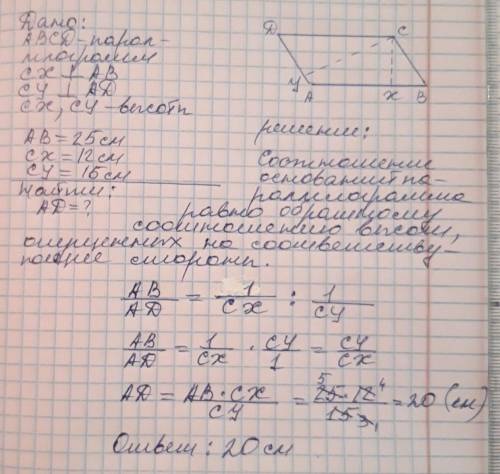 Дано:
ABCD - парал-
лелограмм
CX ⊥ AB
CY ⊥ AD
CX, CY - высоты
AB = 25 см
CX = 12 см
CY = 15 см
Найти:
AD = ?
D C
Y A X B
решение:
Соотношение
оснований па-
раллелограмма
равно обратному
соотношению высот,
опущенных на соответству-
ющие стороны.
AB/AD = 1/CX : 1/CY
AB/AD = 1/CX · CY/1 = CY/CX
AD = AB·CX/CY = 25·12/15 = 20 (см)
5 4
3 1
Ответ: 20 см